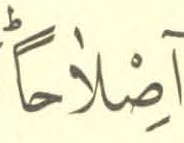 اِصْلاٰحاً ؕ